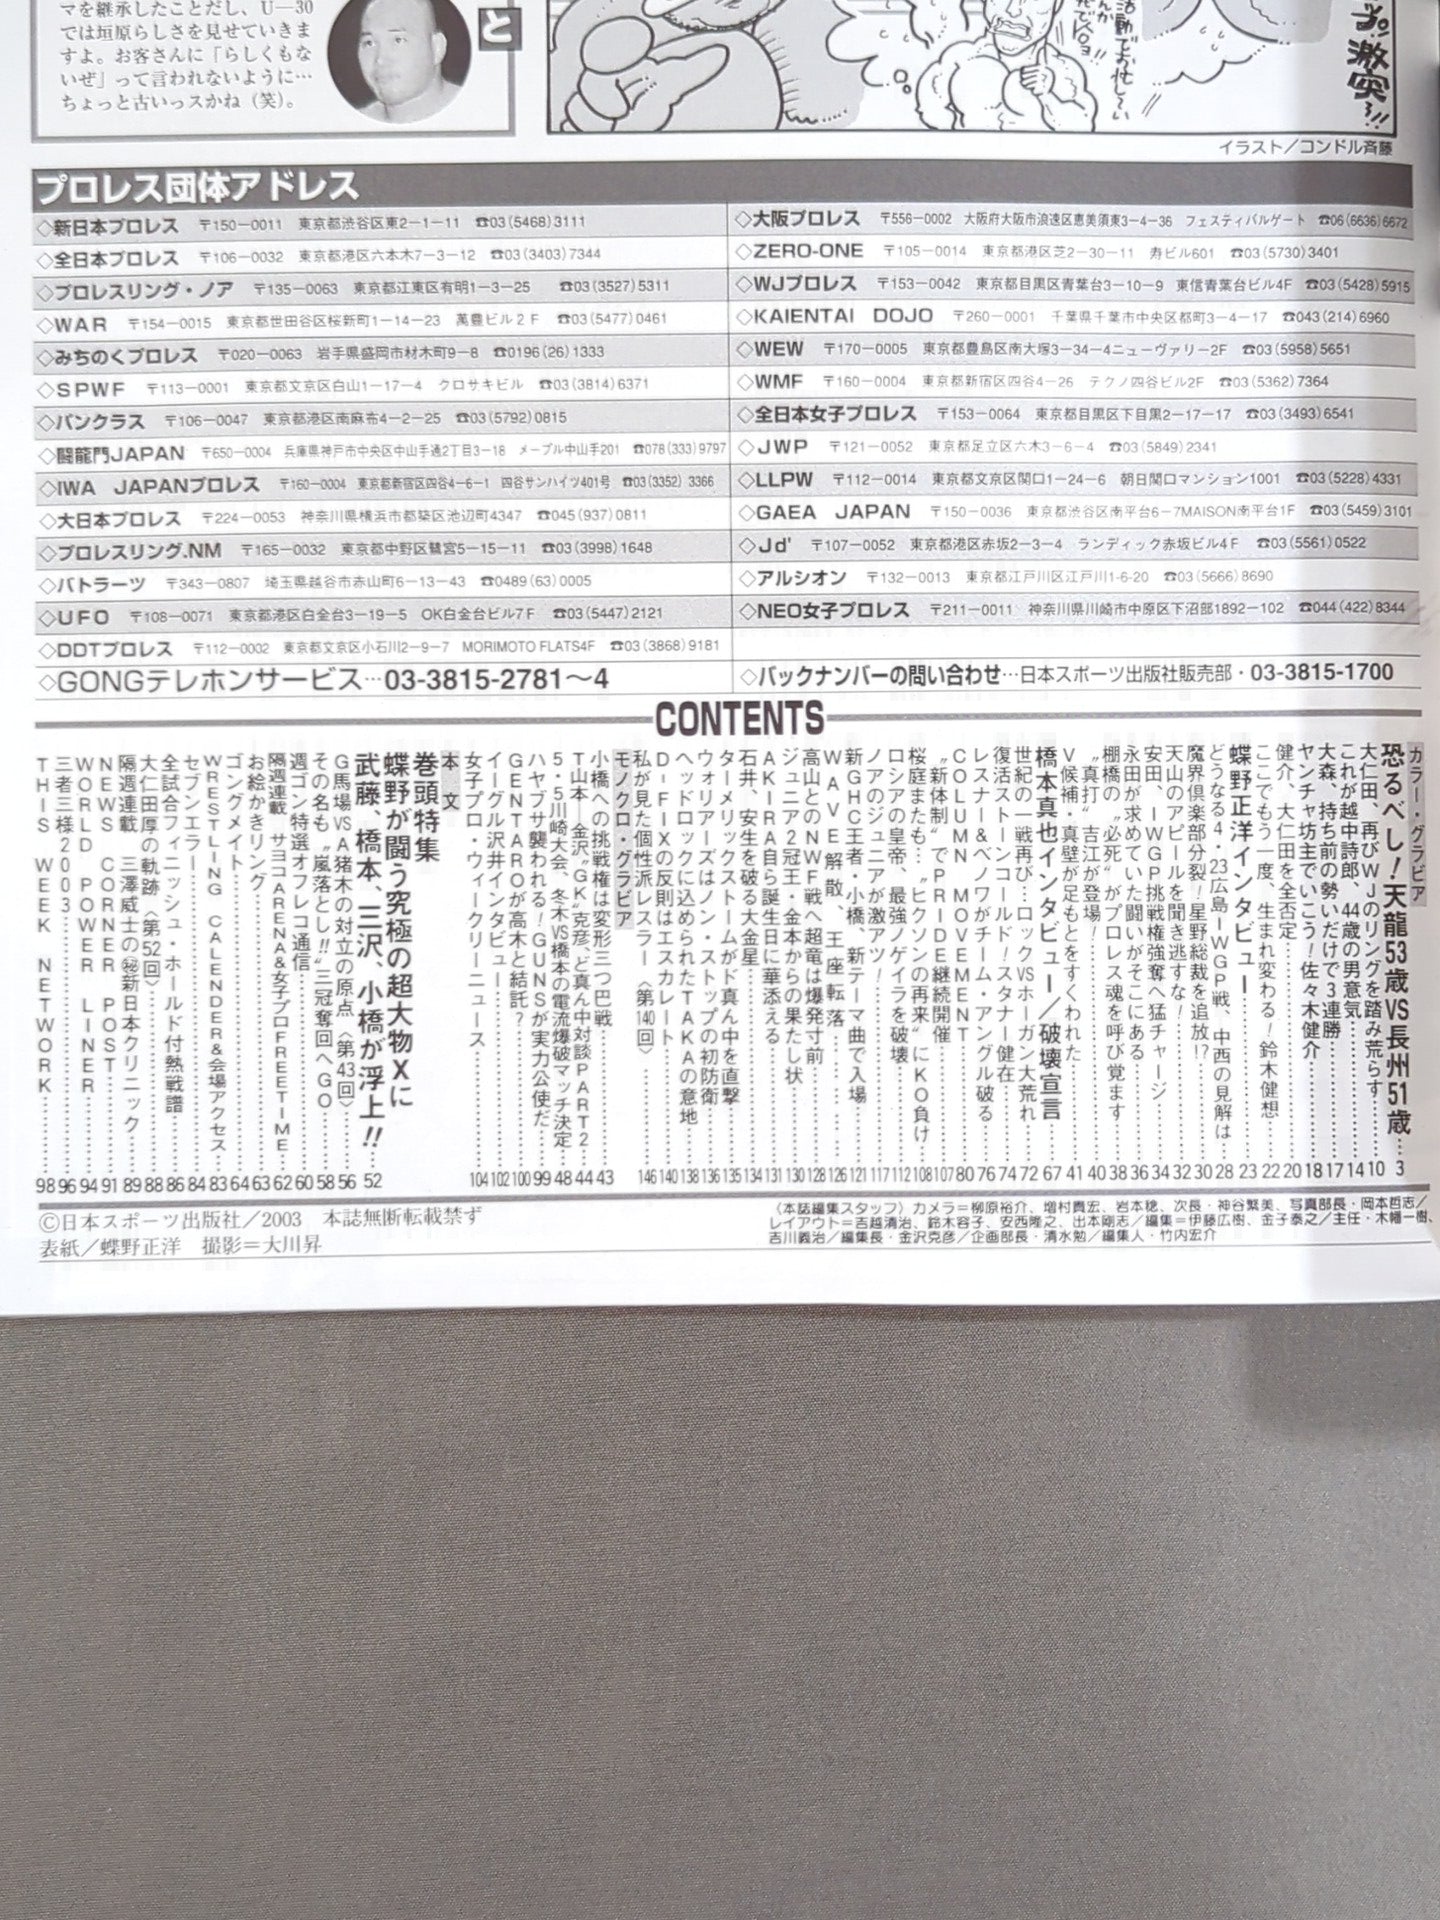 マを継承したことだし、U―30
では垣原らしさを見せていきま
すよ。お客さんに「らしくもな
いぜ」って言われないように…
ちょっと古いっスかね（笑）。
と
激突!!
イラスト／コンドル斉藤
プロレス団体アドレス
◇新日本プロレス 〒150－0011 東京都渋谷区東2－1－11 ☎03(5468)3111
◇全日本プロレス 〒106－0032 東京都港区六本木7－3－12 ☎03(3403)7344
◇プロレスリング・ノア 〒135－0063 東京都江東区有明1－3－25 ☎03(3527)5311
◇WAR 〒154－0015 東京都世田谷区桜新町1－14－23 萬豊ビル2F ☎03(5477)0461
◇みちのくプロレス 〒020－0063 岩手県盛岡市材木町9－8 ☎0196(26)1333
◇SPWF 〒113－0001 東京都文京区白山1－17－4 クロサキビル ☎03(3814)6371
◇パンクラス 〒106－0047 東京都港区南麻布4－2－25 ☎03(5792)0815
◇闘龍門JAPAN 〒650－0004 兵庫県神戸市中央区中山手通2丁目3－18 メープル中山手201 ☎078(333)9797
◇IWA JAPANプロレス 〒160－0004 東京都新宿区四谷4－6－1 四谷サンハイツ401号 ☎03(3352)3366
◇大日本プロレス 〒224－0053 神奈川県横浜市都築区池辺町4347 ☎045(937)0811
◇プロレスリング.NM 〒165－0032 東京都中野区鷺宮5－15－11 ☎03(3998)1648
◇バトラーツ 〒343－0807 埼玉県越谷市赤山町6－13－43 ☎0489(63)0005
◇UFO 〒108－0071 東京都港区白金台3－19－5 OK白金台ビル7F ☎03(5447)2121
◇DDTプロレス 〒112－0002 東京都文京区小石川2－9－7 MORIMOTO FLATS4F ☎03(3868)9181
◇GONGテレホンサービス…03-3815-2781～4
◇大阪プロレス 〒556－0002 大阪府大阪市浪速区恵美須東3－4－36 フェスティバルゲート ☎06(6636)6672
◇ZERO-ONE 〒105－0014 東京都港区芝2－30－11 寿ビル601 ☎03(5730)3401
◇WJプロレス 〒153－0042 東京都目黒区青葉台3－10－9 東信青葉台ビル4F ☎03(5428)5915
◇KAIENTAI DOJO 〒260－0001 千葉県千葉市中央区都町3－4－17 ☎043(214)6960
◇WEW 〒170－0005 東京都豊島区南大塚3－34－4ニューヴァリー2F ☎03(5958)5651
◇WMF 〒160－0004 東京都新宿区四谷4－26 テクノ四谷ビル2F ☎03(5362)7364
◇全日本女子プロレス 〒153－0064 東京都目黒区下目黒2－17－17 ☎03(3493)6541
◇JWP 〒121－0052 東京都足立区六木3－6－4 ☎03(5849)2341
◇LLPW 〒112－0014 東京都文京区関口1－24－6 朝日関口マンション1001 ☎03(5228)4331
◇GAEA JAPAN 〒150－0036 東京都渋谷区南平台6－7MAISON南平台1F ☎03(5459)3101
◇Jd' 〒107－0052 東京都港区赤坂2－3－4 ランディック赤坂ビル4F ☎03(5561)0522
◇アルシオン 〒132－0013 東京都江戸川区江戸川1-6-20 ☎03(5666)8690
◇NEO女子プロレス 〒211－0011 神奈川県川崎市中原区下沼部1892－102 ☎044(422)8344
◇バックナンバーの問い合わせ…日本スポーツ出版社販売部・03-3815-1700
CONTENTS
カラー・グラビア
恐るべし！天龍53歳VS長州51歳…3
大仁田、再びWJのリングを踏み荒らす…10
これが越中詩郎、44歳の男意気…14
大森、持ち前の勢いだけで3連勝…17
ヤンチャ坊主でいこう！佐々木健介…18
健介、大仁田を全否定…20
ここでもう一度、生まれ変わる！鈴木健想…22
蝶野正洋インタビュー…23
どうなる4・23広島IWGP戦、中西の見解は…28
魔界倶楽部分裂！星野総裁を追放!?…30
天山のアピールを聞き逃すな！…32
安田、IWGP挑戦権強奪へ猛チャージ…34
永田が求めていた闘いがそこにある…36
棚橋の〝必死〟がプロレス魂を呼び覚ます…38
〝真打〟吉江が登場！…40
V候補・真壁が足もとをすくわれた…41
橋本真也インタビュー／破壊宣言…67
世紀の一戦再び…ロックVSホーガン大荒れ…72
復活ストーンコールド！スタナー健在…74
レスナー&ベノワがチーム・アングル破る…76
COLUMN MOVEMENT…80
〝新体制〟でPRIDE継続開催…107
桜庭またも…〝ヒクソンの再来〟にKO負け…108
ロシアの皇帝、最強ノゲイラを破壊…112
ノアのジュニアが激アツ！…117
新GHC王者・小橋、新テーマ曲で入場…121
WAVE解散、王座転落…126
高山とのNWF戦へ超竜は爆発寸前…128
ジュニア2冠王・金本からの果たし状…130
AKIRA自ら誕生日に華添える…131
石井、安生を破る大金星…134
ターメリックストームがド真ん中を直撃…135
ウォリアーズはノン・ストップの初防衛…136
ヘッドロックに込められたTAKAの意地…138
D-FIXの反則はエスカレート…140
私が見た個性派レスラー〈第140回〉…146
モノクロ・グラビア
小橋への挑戦権は変形三つ巴戦…43
T山本 金沢〝GK〟克彦、ど真ん中対談PART2…44
5・5川崎大会、冬木VS橋本の電流爆破マッチ決定…48
ハヤブサ襲われる！GUNSが実力公使だ…99
GENTAROが高木と結託？…100
イーグル沢井インタビュー…102
女子プロ・ウィークリーニュース…104
本文
巻頭特集
蝶野が闘う究極の超大物Xに
武藤、橋本、三沢、小橋が浮上!!…52
G馬場VSA猪木の対立の原点〈第43回〉…56
その名も〝嵐落とし!!〟三冠奪回へGO…58
週ゴン特選オフレコ通信…60
隔週連載 サヨコARENA&女子プロFREETIME…62
お絵かきリング…63
ゴングメイト…64
WRESTLING CALENDER&会場アクセス…83
セブンエラー…84
全試合フィニッシュ・ホールド付熱戦譜…86
大仁田厚の軌跡〈第52回〉…88
隔週連載 三澤威士の㊙新日本クリニック…89
NEWS CORNER POST…91
WORLD POWER LINER…94
三者三様2003…96
THIS WEEK NETWORK…98
©日本スポーツ出版社／2003 本誌無断転載禁ず
表紙／蝶野正洋 撮影＝大川昇
〈本誌編集スタッフ〉カメラ＝柳原裕介、増村貴宏、岩本稔、次長・神谷繁美、写真部長・岡本哲志／
レイアウト＝吉越清治、鈴木容子、安西隆之、出本剛志／編集＝伊藤広樹、金子泰之／主任・木幡一樹、
吉川義治／編集長・金沢克彦／企画部長・清水勉／編集人・竹内宏介